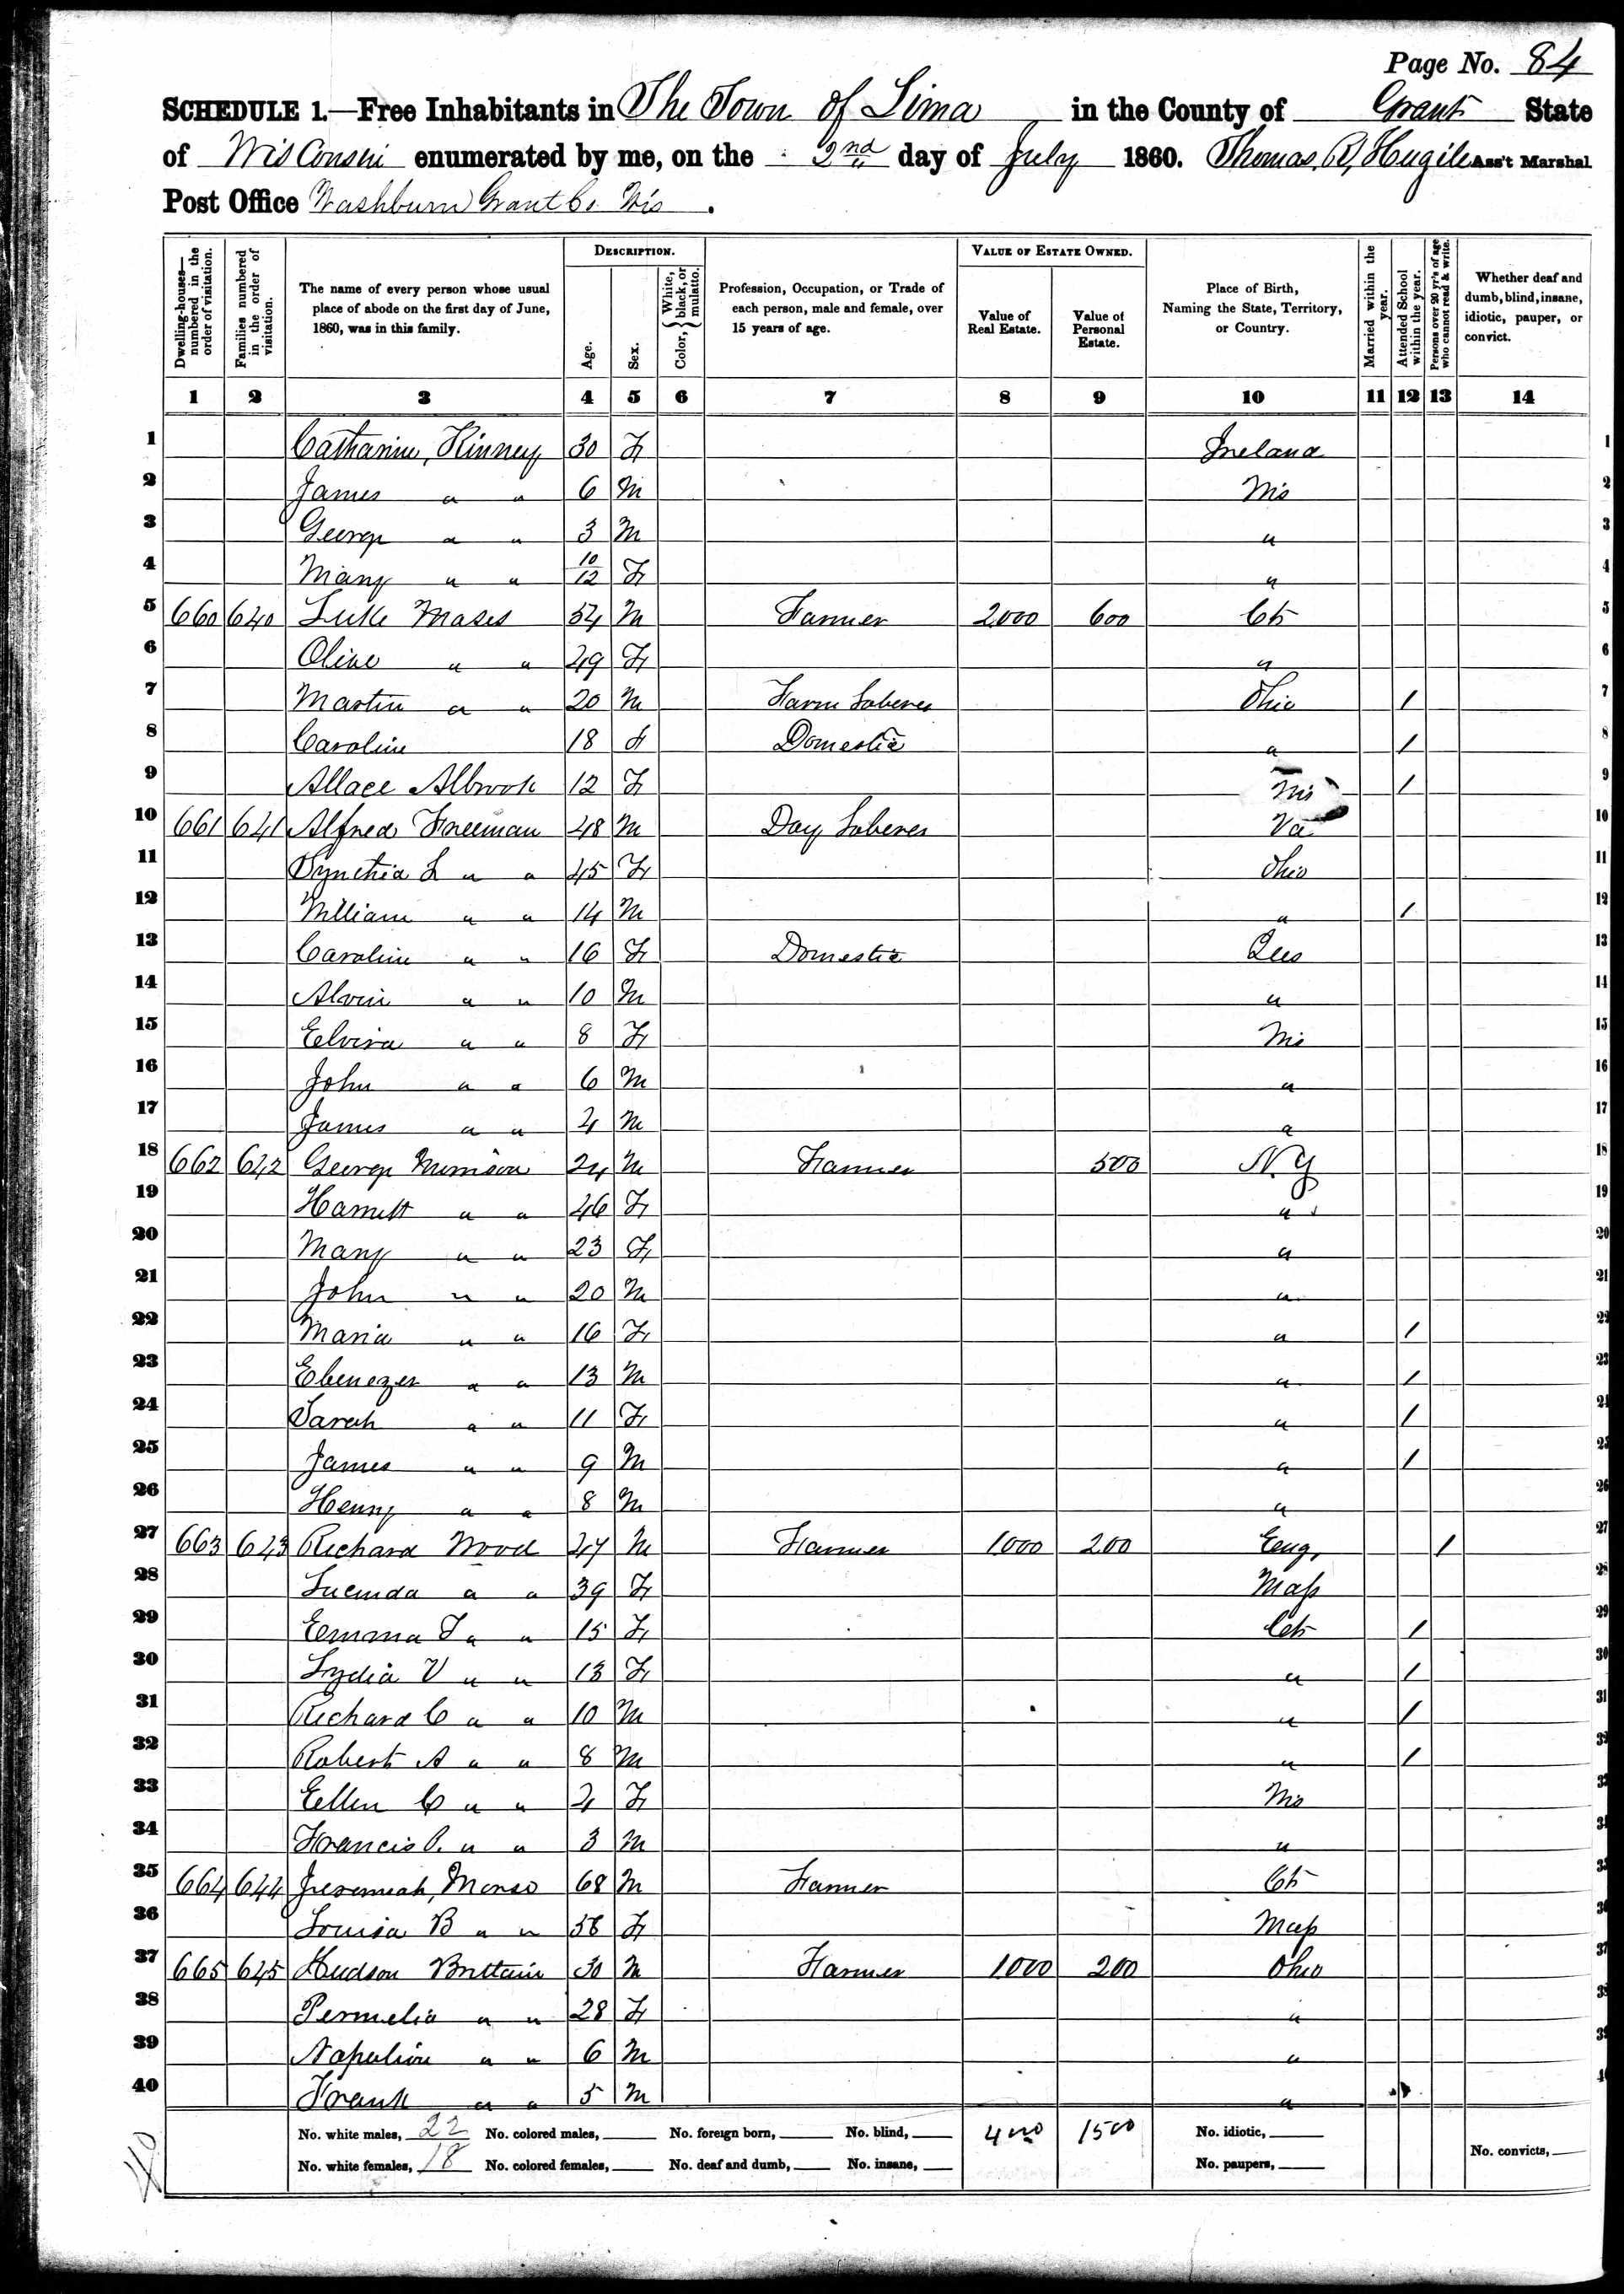 Page No. 84
SCHEDULE 1.—Free Inhabitants in The Town of Lima in the County of Grant State
of Wisconsin enumerated by me, on the 2nd day of July 1860. Thomas. R, Hugile Ass't Marshal
Post Office Washburn Grant Co. Wis.
Dwelling-houses—numbered in the order of visitation. Families numbered in the order of visitation. The name of every person whose usual place of abode on the first day of June, 1860, was in this family. DESCRIPTION. Age. Sex. Color, { White, black, or mulatto. Profession, Occupation, or Trade of each person, male and female, over 15 years of age. VALUE OF ESTATE OWNED. Value of Real Estate. Value of Personal Estate. Place of Birth, Naming the State, Territory, or Country. Married within the year. Attended School within the year. Persons over 20 yr's of age who cannot read & write. Whether deaf and dumb, blind, insane, idiotic, pauper, or convict.
1 2 3 4 5 6 7 8 9 10 11 12 13 14
1 Catharine, Kinney 30 F Ireland 1
2 James " " 6 M Wis 2
3 George " " 3 M " 3
4 Mary " " 10/12 F " 4
5 660 640 Luke Moses 54 M Farmer 2000 600 Ct 5
6 Olive " " 49 F " 6
7 Martin " " 20 M Farm Laberer Ohio / 7
8 Caroline 18 F Domestic " / 8
9 Allace Albrook 12 F Wis / 9
10 661 641 Alfred Freeman 48 M Day Laberer Va 10
11 Cynthia L " " 45 F Ohio 11
12 William " " 14 M " / 12
13 Caroline " " 16 F Domestic Ills 13
14 Alvin " " 10 M " 14
15 Elvira " " 8 F Wis 15
16 John " " 6 M " 16
17 James " " 4 M " 17
18 662 642 George Morrison 24 M Farmer 500 N.Y 18
19 Harriett " " 46 F " 19
20 Mary " " 23 F " 20
21 John " " 20 M " 21
22 Maria " " 16 F " / 22
23 Ebenezer " " 13 M " / 23
24 Sarah " " 11 F " / 24
25 James " " 9 M " / 25
26 Henry " " 8 M " 26
27 663 643 Richard Wood 47 M Farmer 1000 200 Eng, / 27
28 Lucinda " " 39 F Mass 28
29 Emma J " " 15 F Ct / 29
30 Lydia V " " 13 F " / 30
31 Richard C " " 10 M " / 31
32 Robert A " " 8 M " / 32
33 Ellen C " " 4 F Wis 33
34 Francis P. " " 3 M " 34
35 664 644 Jeremiah, Morse 68 M Farmer Ct 35
36 Louisa B " " 58 F Mass 36
37 665 645 Hudson Brittain 30 M Farmer 1000 200 Ohio 37
38 Permelia " " 28 F " 38
39 Napolion " " 6 M " 39
40 Frank " " 5 M " 40
No. white males, 22 No. colored males, No. foreign born, No. blind, 4000 1500 No. idiotic,
No. white females, 18 No. colored females, No. deaf and dumb, No. insane, No. paupers, No. convicts,
40